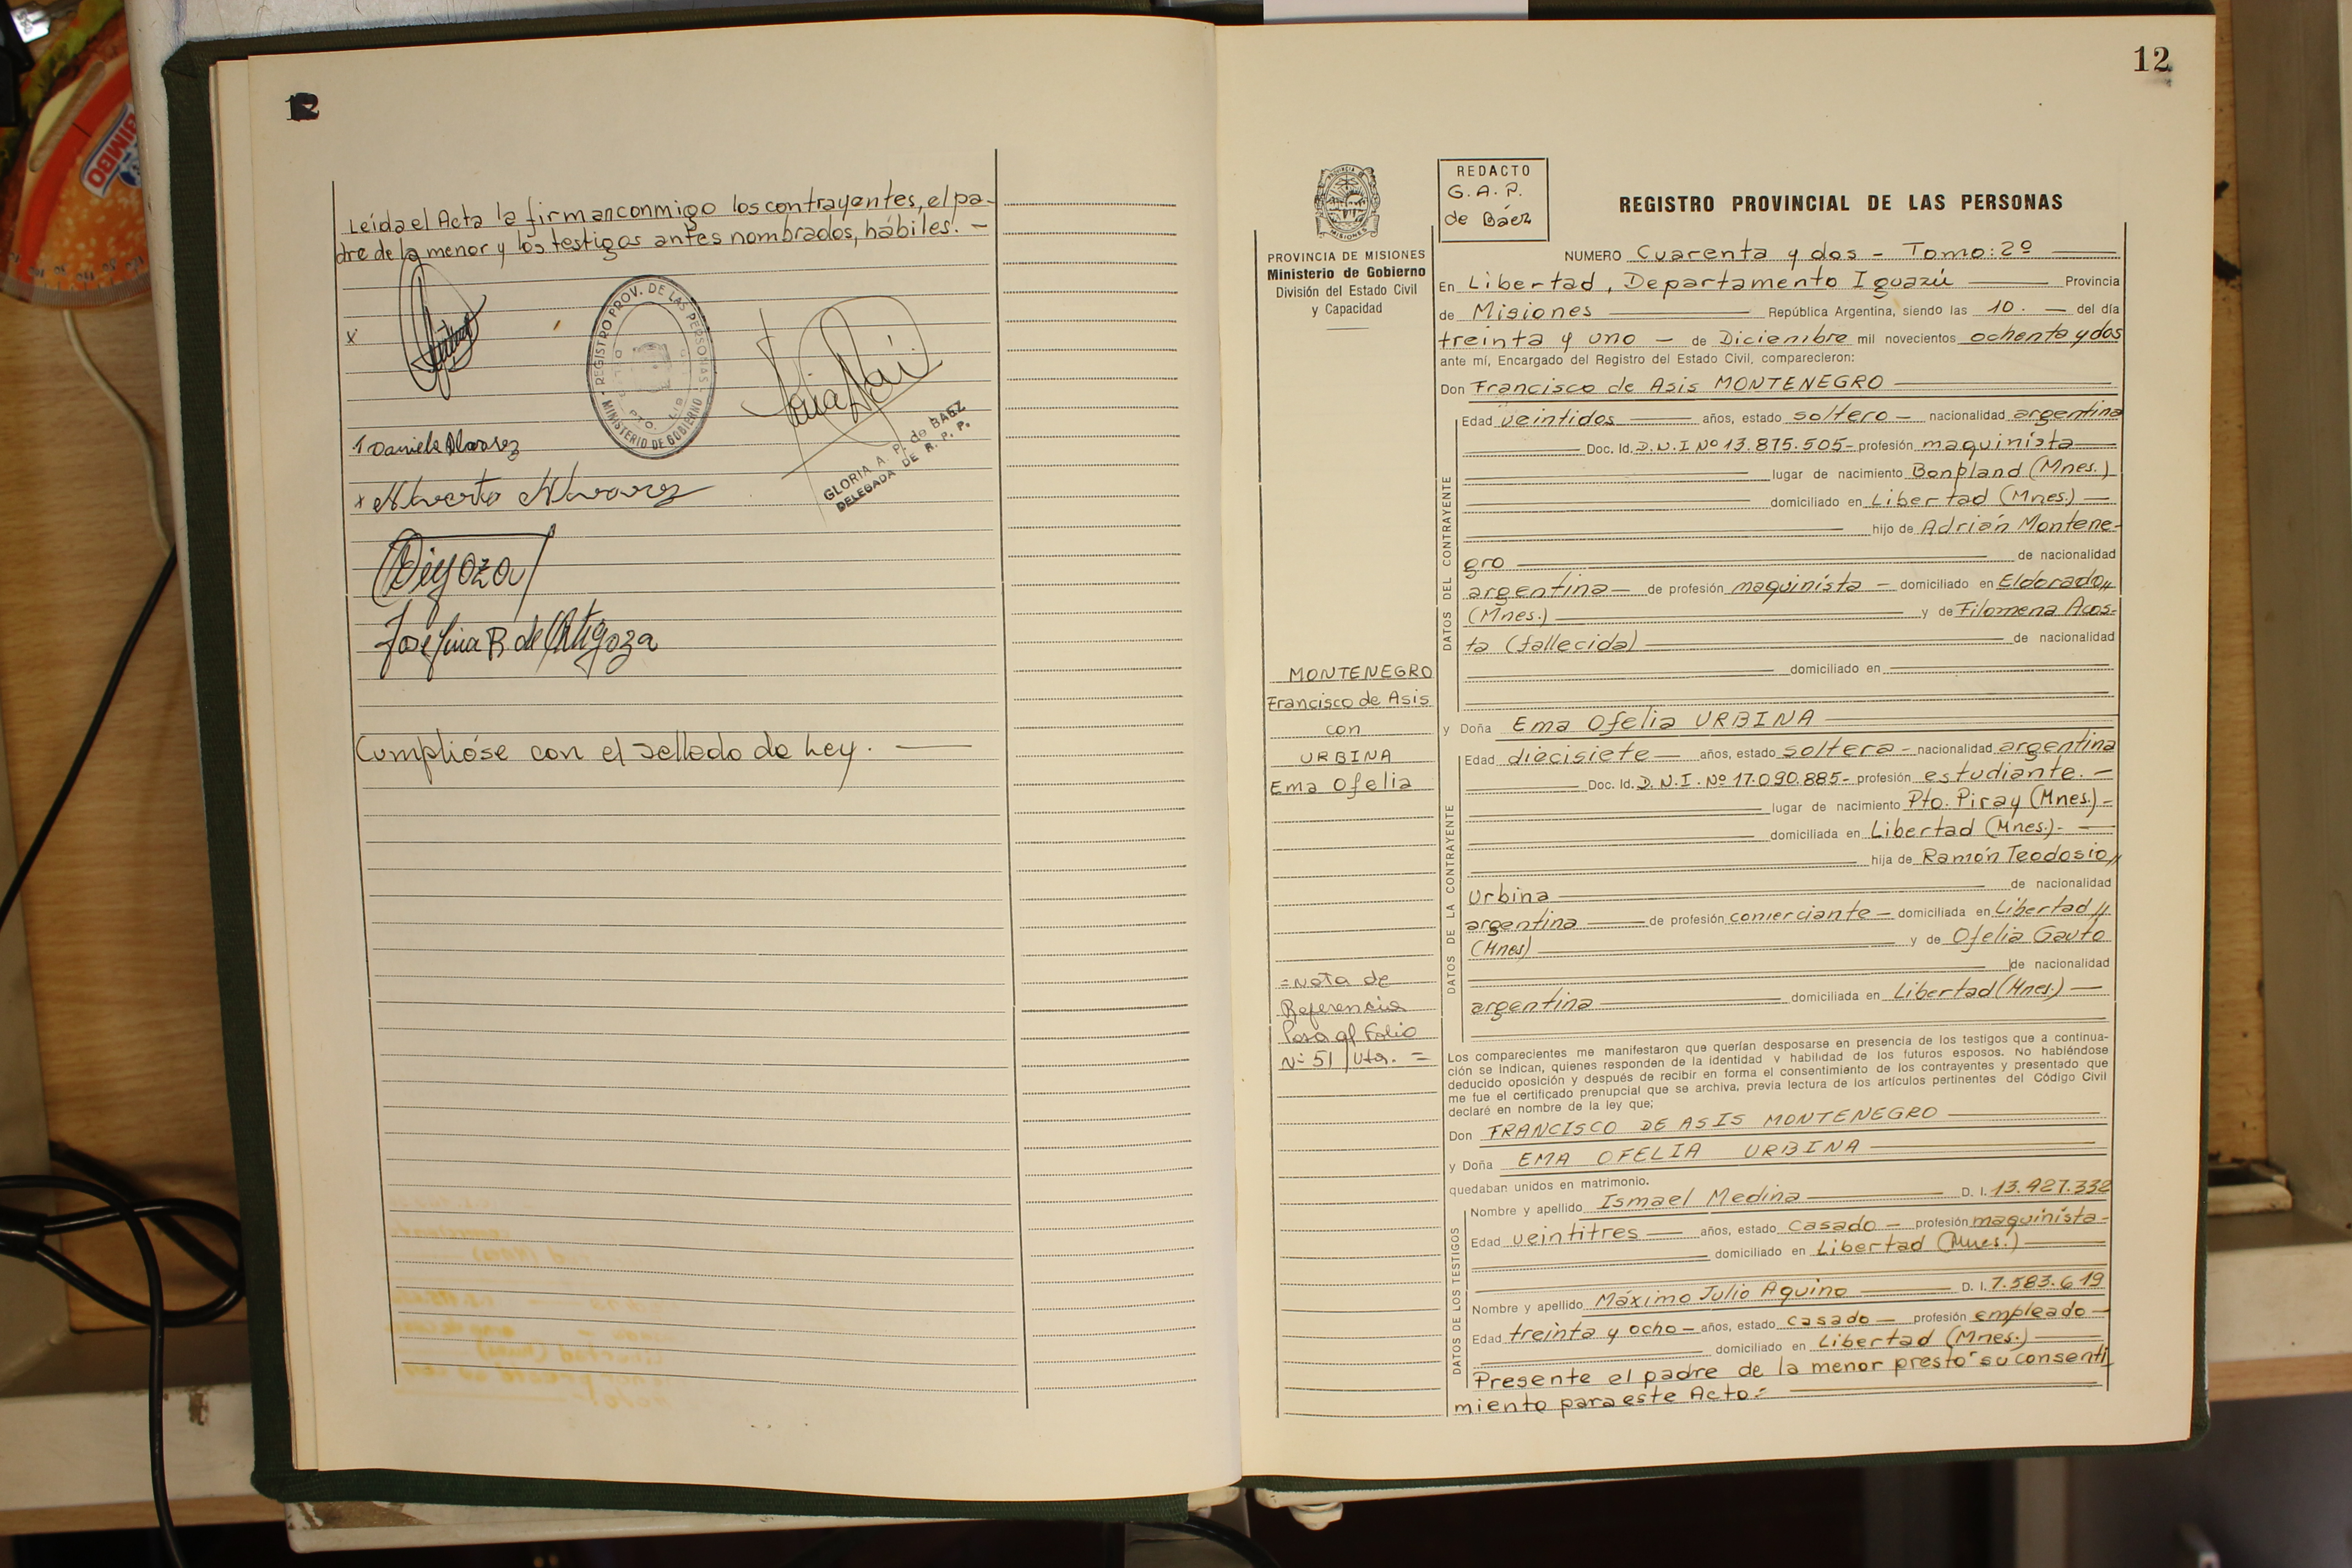 12
Leída el Acta la firman conmigo los contrayentes, el pa-
dre de la menor y los testigos antes nombrados, hábiles. -
x
REGISTRO PROV. DE LAS PERSONAS
MINISTERIO DE GOBIERNO
GLORIA A. P. de BAEZ
DELEGADA DE R. P. P.
Daniela Alvarez
x Alverto Alvarez
Josefina R. de Ortigoza
Cumplióse con el sellado de Ley. —
BIMBO
12
PROVINCIA DE MISIONES
Ministerio de Gobierno
División del Estado Civil
y Capacidad
MONTENEGRO
Francisco de Asis
con
URBINA
Ema Ofelia
= Nota de
Referencia
Pasa al Folio
Nº 51 / Vta. =
REDACTO
G. A. P.
de Báez
REGISTRO PROVINCIAL DE LAS PERSONAS
NUMERO Cuarenta y dos - Tomo: 2º
En Libertad, Departamento Iguazú Provincia
de Misiones República Argentina, siendo las 10. — del día
treinta y uno — de Diciembre mil novecientos ochenta y dos
ante mí, Encargado del Registro del Estado Civil, comparecieron:
Don Francisco de Asis MONTENEGRO
DATOS DEL CONTRAYENTE
Edad veintidos años, estado soltero — nacionalidad argentina
Doc. Id. D.N.I Nº 13.875.505- profesión maquinista
lugar de nacimiento Bonpland (Mnes.)
domiciliado en Libertad (Mnes.) —
hijo de Adrián Montene-
gro de nacionalidad
argentina — de profesión maquinista — domiciliado en Eldorado,,
(Mnes.) y de Filomena Acos-
ta (fallecida) de nacionalidad
domiciliado en
y Doña Ema Ofelia URBINA
DATOS DE LA CONTRAYENTE
Edad diecisiete — años, estado soltera - nacionalidad argentina
Doc. Id. D.N.I. Nº 17.090.885- profesión estudiante. —
lugar de nacimiento Pto. Piray (Mnes.) -
domiciliada en Libertad (Mnes.)- —
hija de Ramón Teodosio,,
Urbina de nacionalidad
argentina de profesión comerciante — domiciliada en Libertad,,
(Mnes) y de Ofelia Gauto
de nacionalidad
argentina domiciliada en Libertad (Mnes.) —
Los comparecientes me manifestaron que querían desposarse en presencia de los testigos que a continua-
ción se indican, quienes responden de la identidad y habilidad de los futuros esposos. No habiéndose
deducido oposición y después de recibir en forma el consentimiento de los contrayentes y presentado que
me fue el certificado prenupcial que se archiva, previa lectura de los artículos pertinentes del Código Civil
declaré en nombre de la ley que;
Don FRANCISCO DE ASIS MONTENEGRO
y Doña EMA OFELIA URBINA
quedaban unidos en matrimonio.
DATOS DE LOS TESTIGOS
Nombre y apellido Ismael Medina D. I. 13.927.332
Edad veintitres — años, estado casado — profesión maquinista -
domiciliado en Libertad (Mnes.)
Nombre y apellido Máximo Julio Aquino D. I. 7.583.619
Edad treinta y ocho — años, estado casado — profesión empleado —
domiciliado en Libertad (Mnes.)
Presente el padre de la menor prestó su consenti
miento para este Acto.-